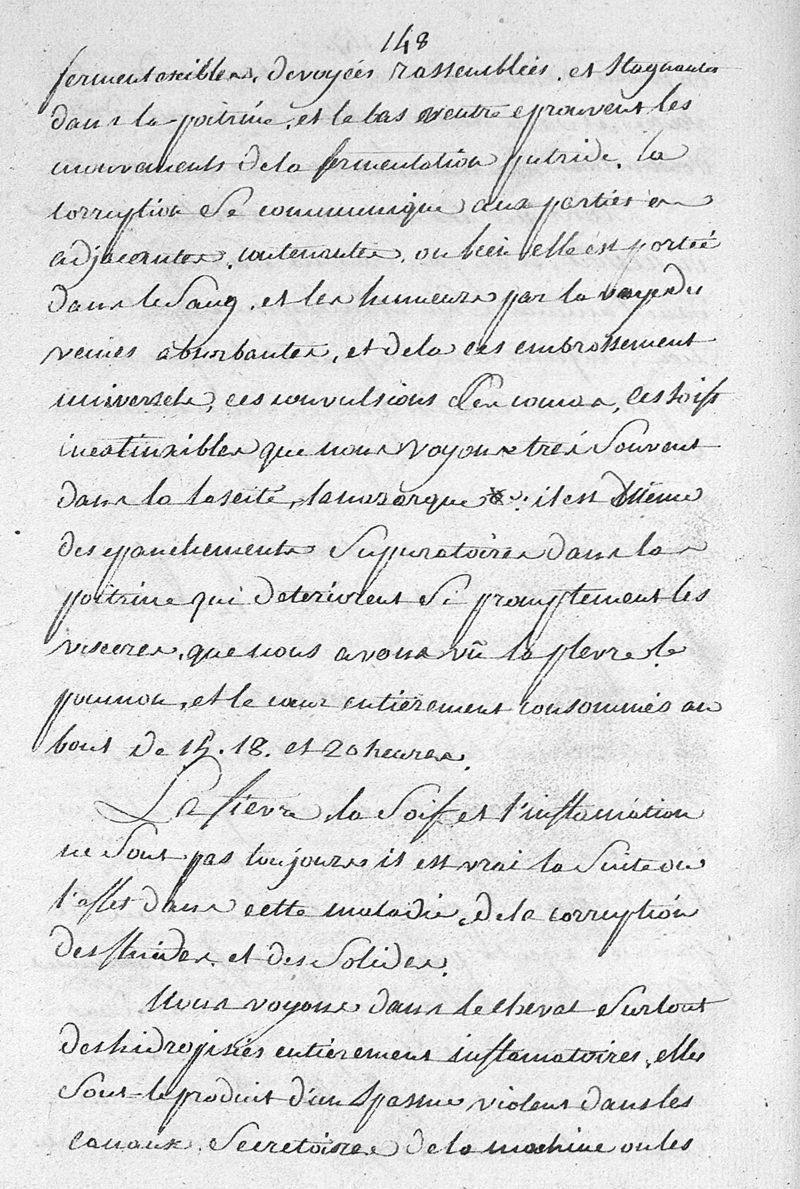 148
fermentescibles, devoyées rassemblées, et stagnantes
dans la poitrine, et le bas ventre eprouvent les
mouvements de la fermentation putride, la
corruption se communique aux parties
adjacentes, contenantes, ou bien elle est portée
dans le sang, et les humeurs par la voye des
veines absorbantes, et dela ces embrassement
universels, ces convulsions ces soifs
inextinxibles que nous voyons très souvent
dans la lascité, &c. il en
des epanchements supuratoires dans la
poitrine qui deteriorent si promptement les
visceres, que nous avons vû la plevre le
poumon, et le cœur entièrement consommés au
bout de 15. 18. et 20 heures.
La fievre, la soif et l'inflamation
ne sont pas toujours il est vrai la suite ou
l'effet dans cette maladie, de la corruption
des fluides, et des solides.
Nous voyons dans le cheval surtout
des hidropisies entièrement inflamatoires, elles
sont le produit d'un spasme violent dans les
canaux secretoires de la machine ou les